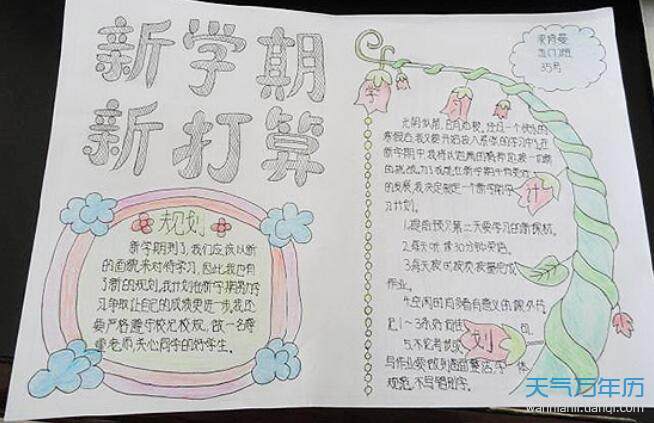 新学期
新打算
规划
新学期到了,我们应该以新
的面貌来对待学习,因此我也有
了新的规划,我计划在新学期努力学
习争取让自己的成绩更进一步,我还
要严格遵守校纪校规,做一名尊
重老师,关心同学的好学生。
35号
学
习
计
划
光阴似箭,日月如梭,经过一个快乐的
寒假后,我又要开始投入紧张的学习中了,在
新学期中,我将以饱满的精神迎接一切新
的挑战,为了我能在新学期中有更好
的发展,我决定制定一个新学期学
习计划。
1.提前预习第二天要学习的新课材。
2.每天听读30分钟英语。
3.每天按时按质按量完成
作业。
4.空闲时间多看有意义的课外书
记1~3条好词佳句
写作业要做到
规范,不写错别字。
天气万年历
wannianli.tianqi.com